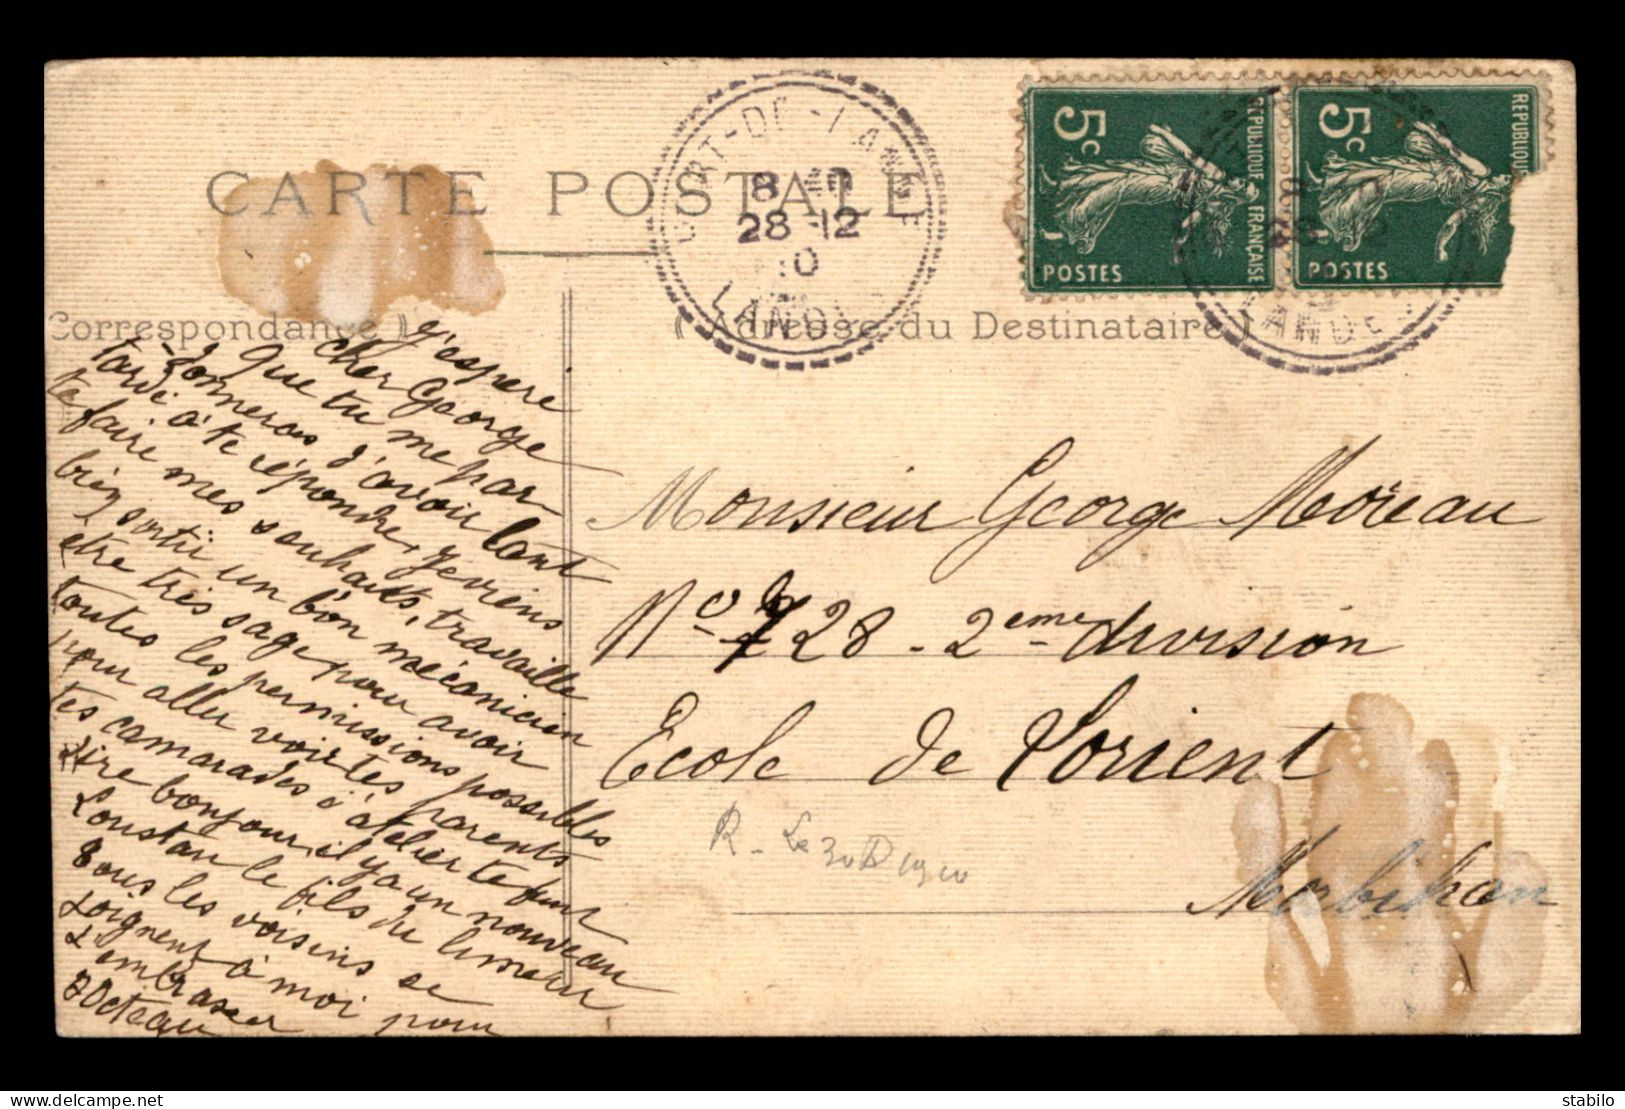 CARTE POSTALE
Correspondance )
( Adresse du Destinataire )
PORT-DE-LANNE
8
28-12
10
LANDES
REPUBLIQUE FRANÇAISE
5c
POSTES
REPUBLIQUE
5c
POSTES
LANDES
cher George
J'espère
Que tu me par-
donneras d'avoir tant
tardé à te répondre, je viens
te faire mes souhaits, travaille
bien, sortir un bon mécanicien
être très sage pour avoir
toutes les permissions possibles
pour aller voir tes parents
tes camarades d'atelier te font
dire bonjour, il y a un nouveau
Loustau le fils du limeur
Tous les voisins se
joignent à moi pour
t'embrasser
Monsieur George Moreau
No 728 - 2eme division
Ecole de Lorient
Morbihan
R - Le 30 D 1910
stabilo